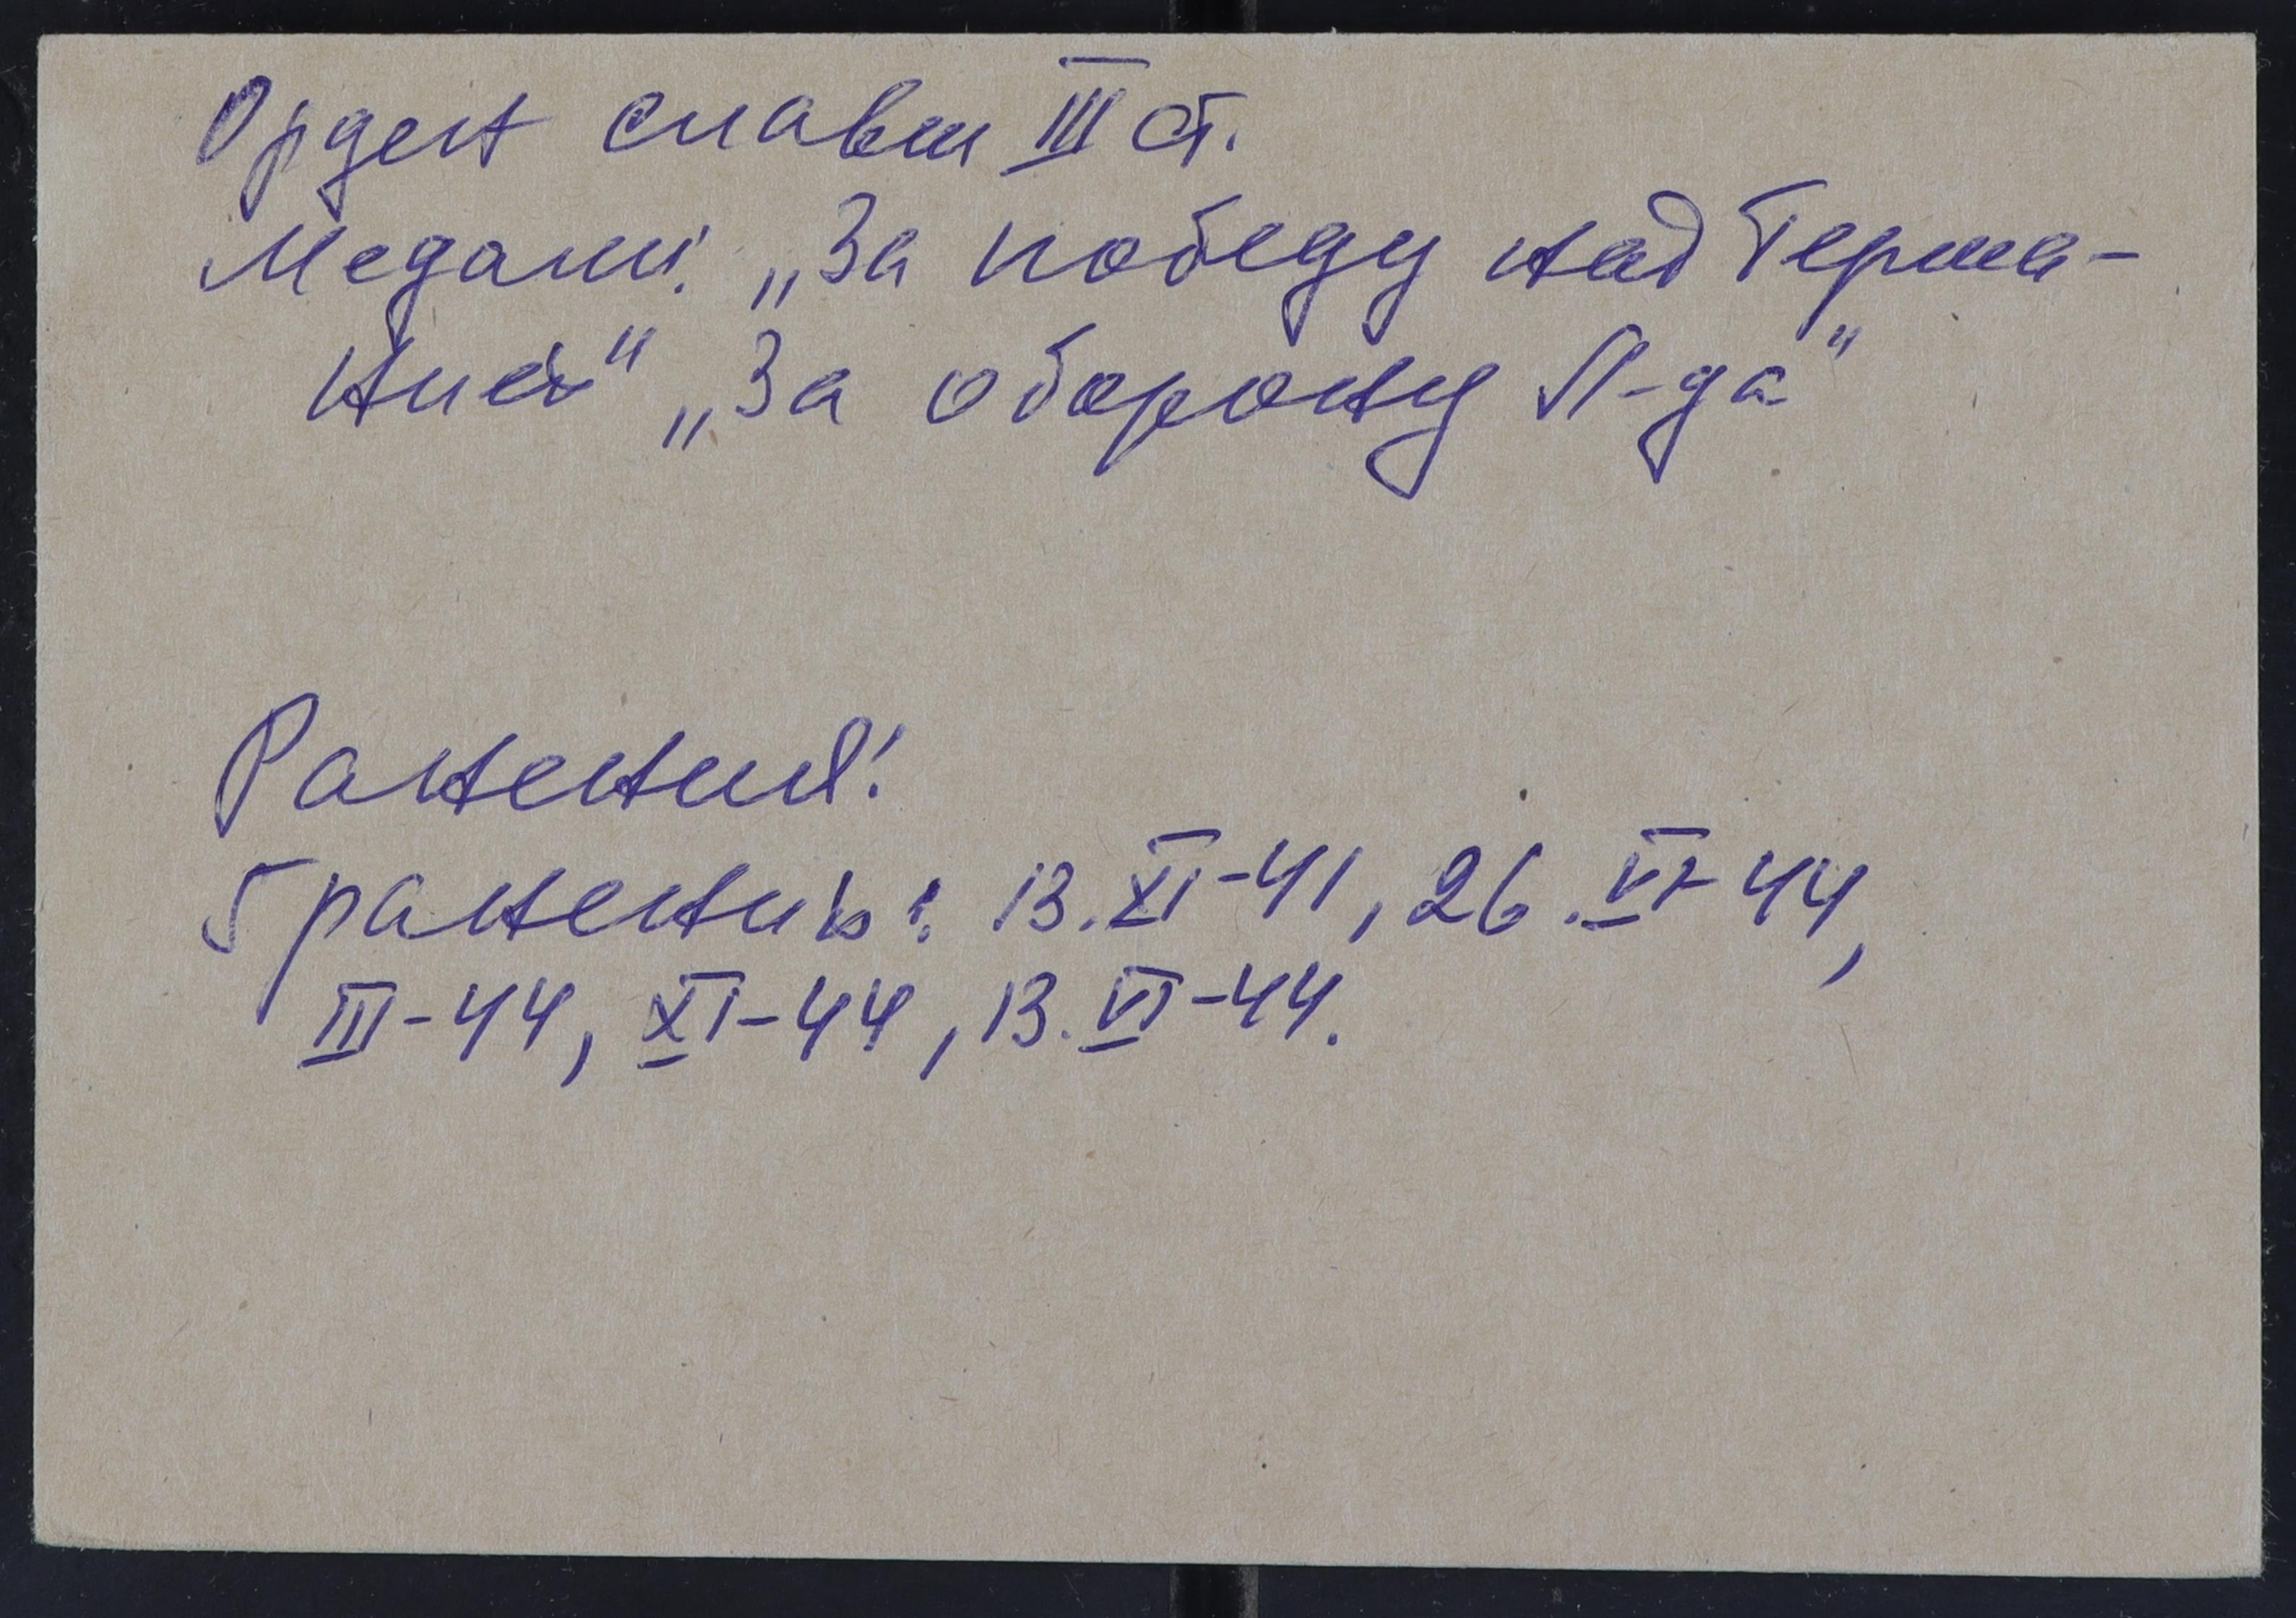 Орден славы III ст.
Медали: „За победу над Герма-
нией" „За оборону Л-да"
Ранения:
5 ранений: 13.XI-41, 26.VI-44,
III-44, XI-44, 13.VI-44.